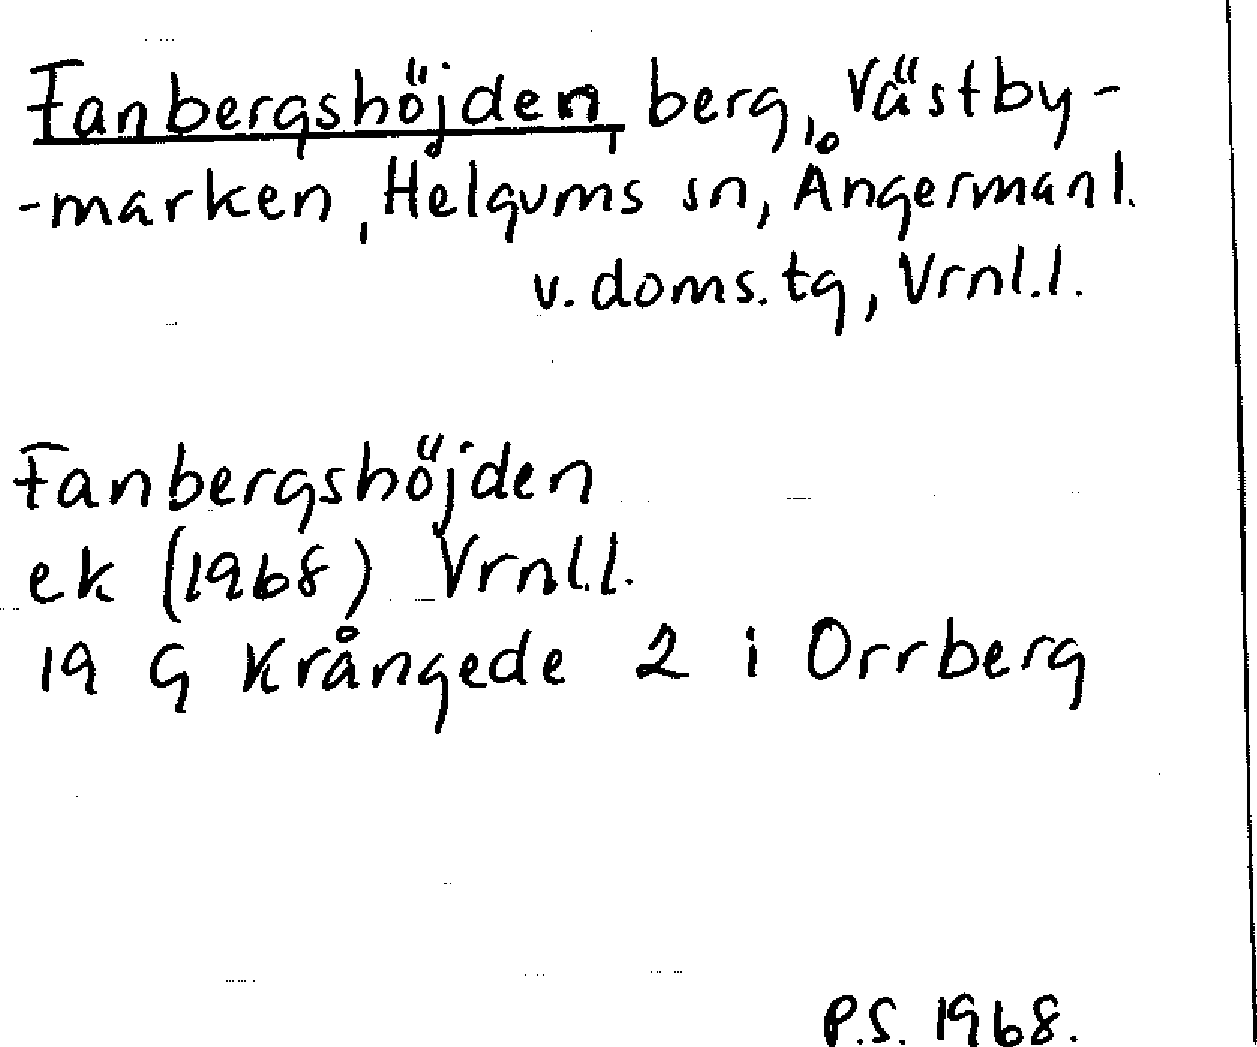 Fanbergshöjden, berg, Västby-
-marken, Helgums sn, Ångermanl.
v. doms. tg, Vrnl.l.
Fanbergshöjden
ek (1968) Vrnl.l.
19 G Krångede 2 i Orrberg
P.S. 1968.